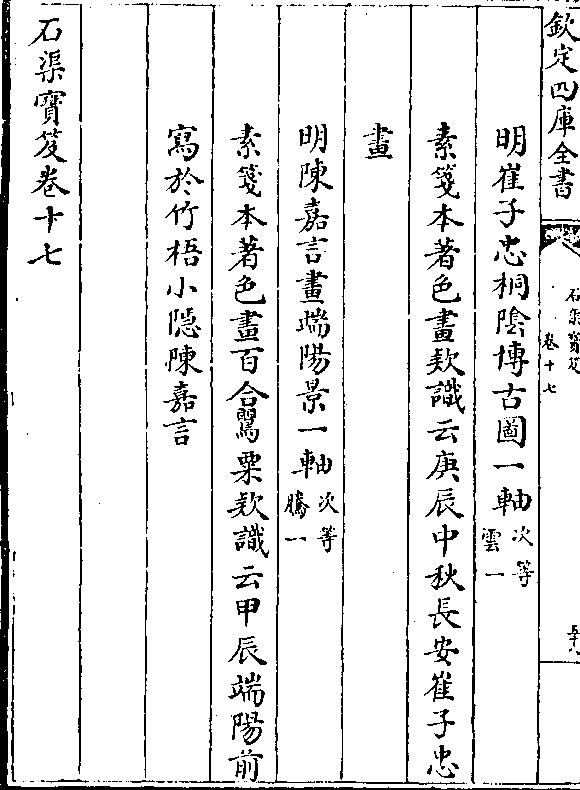 欽定四庫全書
石渠寶笈
卷十七
五十八
明崔子忠桐隂博古圖一軸次等
雲一
素箋本著色畫欵識云庚辰中秋長安崔子忠
畫
明陳嘉言畫端陽景一軸次等
騰一
素箋本著色畫百合罌粟欵識云甲辰端陽前
寫於竹梧小隠陳嘉言
石渠寶笈卷十七